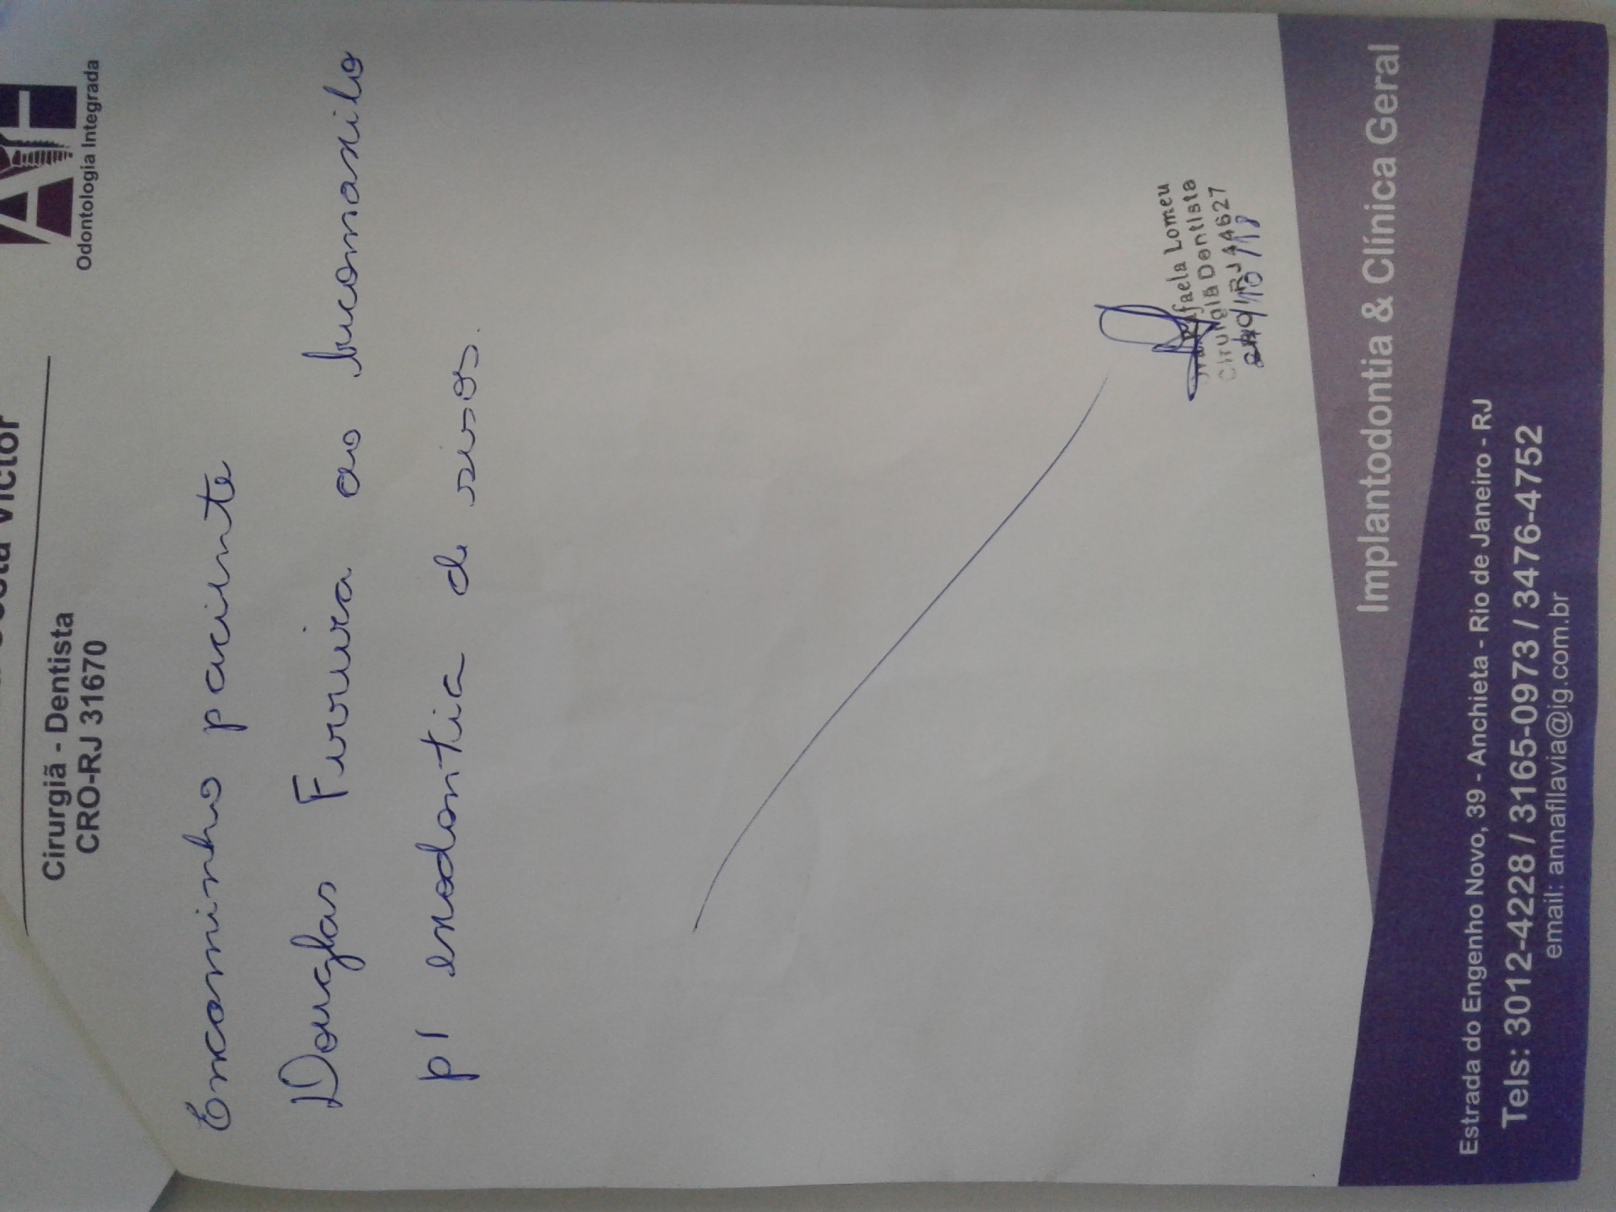 Costa Victor
Cirurgiã - Dentista
CRO-RJ 31670
AF
Odontologia Integrada
Encaminho paciente
Douglas Ferreira ao bucomaxilo
p/ exodontia de sisos.
Dra. Rafaela Lomeu
Cirurgiã Dentista
CRO/RJ 44627
24/10/18
Implantodontia & Clínica Geral
Estrada do Engenho Novo, 39 - Anchieta - Rio de Janeiro - RJ
Tels: 3012-4228 / 3165-0973 / 3476-4752
email: annafllavia@ig.com.br